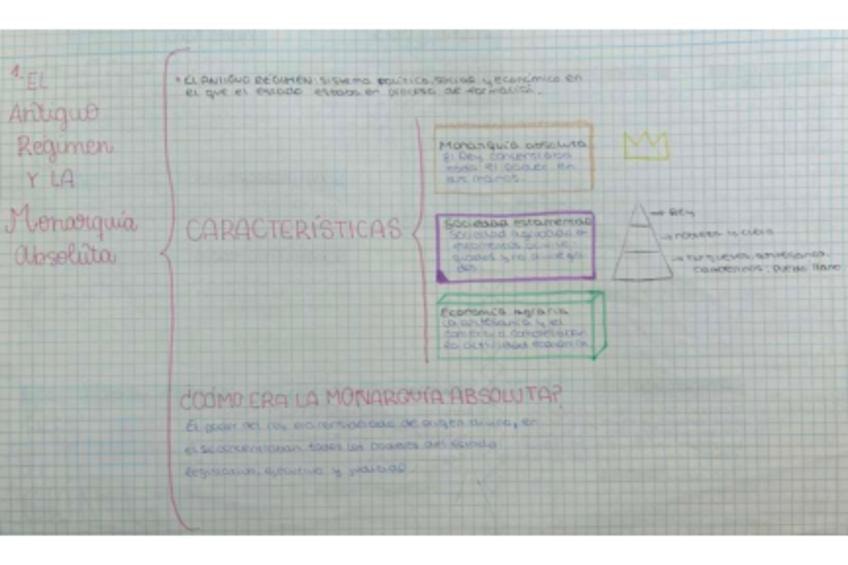 1. EL
Antiguo
Régimen
Y LA
Monarquía
absoluta
• EL ANTIGUO REGIMEN: sistema político, social y económico en
el que el estado estaba en proceso de formación.
CARACTERÍSTICAS
Monarquía absoluta
El Rey concentraba
todo el poder en
sus manos.
Sociedad estamental
sociedad agrupada en
estamentos
Economía agraria
La artesanía y el
comercio
actividades económicas
→ Rey
→ nobleza y clero
→ burgueses, artesanos,
campesinos: pueblo llano
¿CÓMO ERA LA MONARQUÍA ABSOLUTA?
El poder del rey era considerado de origen divino, en
el se concentraban todos los poderes del estado
legislativo, ejecutivo y judicial